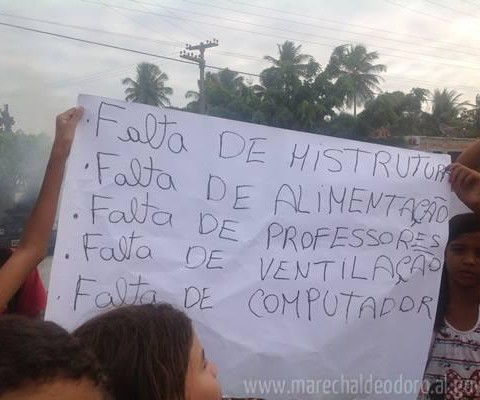 · Falta DE MISTRUTURA
· Falta DE ALIMENTAÇÃO
· Falta DE PROFESSORES
· Falta DE VENTILAÇÃO
· Falta DE COMPUTADOR
www.marechaldeodoro.al.gov